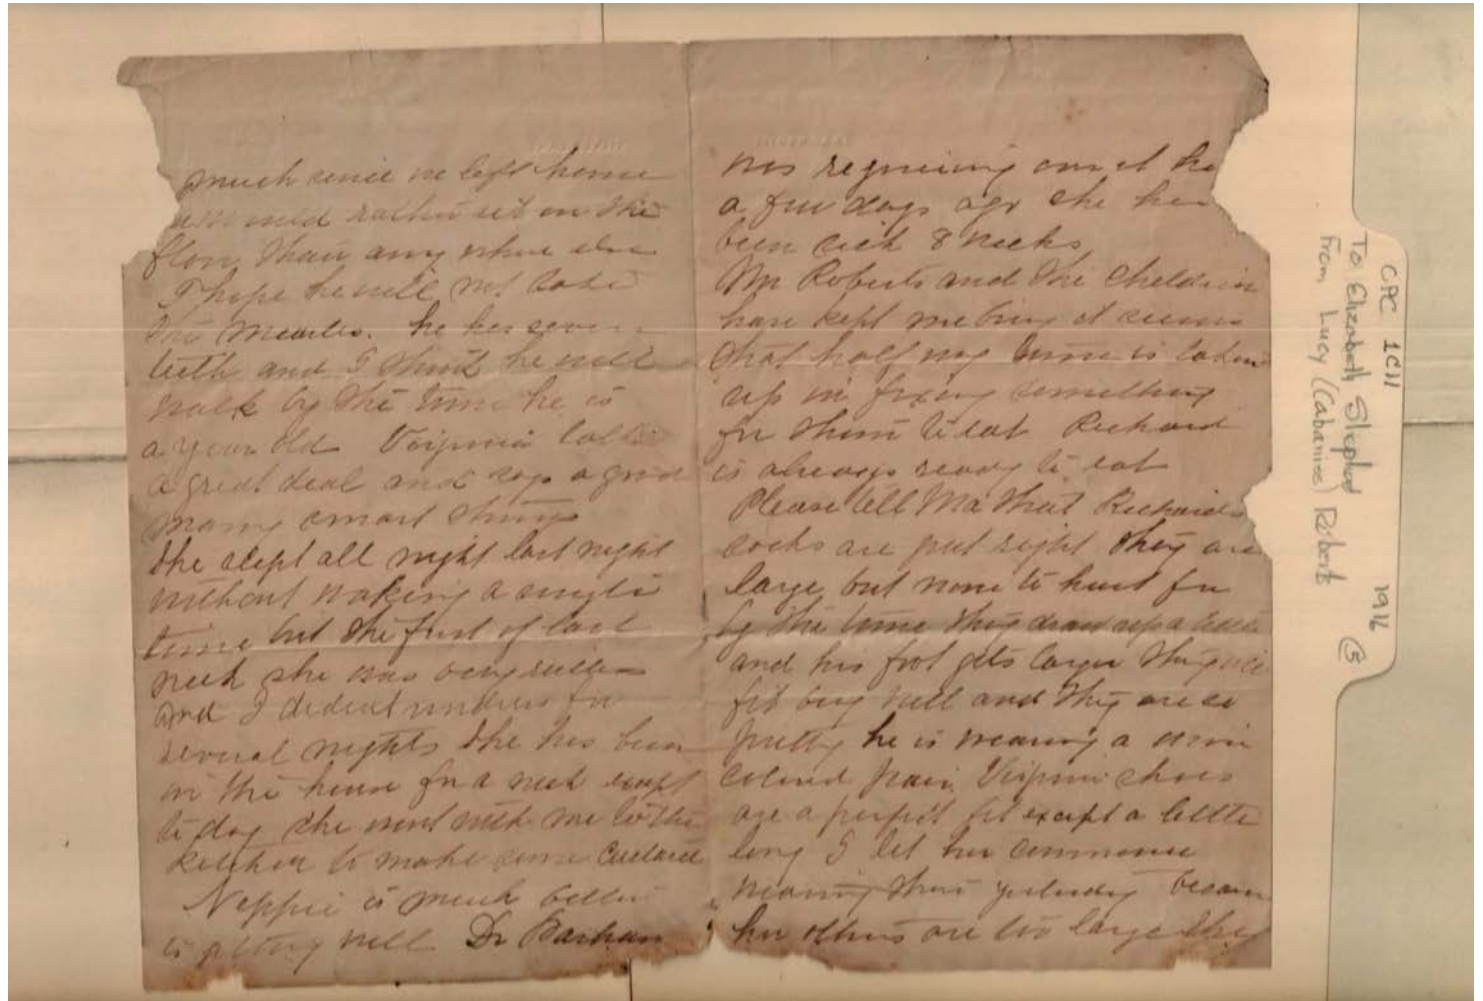 much since we left home
rather set on the
floor than any where else
I hope he will not take
the measles. he has seven
teeth and I think he will
walk by the time he is
a year old Virginia talks
a great deal and says a good
many smart things
She slept all night last night
without waking a single
time but the first of last
week she was very
and I dident undress for
several nights She has been
in the house for a week except
to day She went with me to the
kitchen to make some Custard
Neppie is much better
is getting well Dr
was
a few days ago she has
been sick 8 weeks
Mr Roberts and the children
have kept me busy it seems
that half my time is taken
up in fixing something
for them to eat Richard
is always ready to eat
Please tell Ma that Richards
socks are just right they are
large but none to hurt for
by the time they draw up a little
and his foot gets larger they will
fit very well and they are so
pretty he is wearing a
colored pair Virginia shoes
are a perfect fit except a little
long I let her commence
wearing them yesterday because
her others are too large they
CPC 1C11 1916 (5)
To Elizabeth Stephed
From Lucy (Cabaniss) Roberts